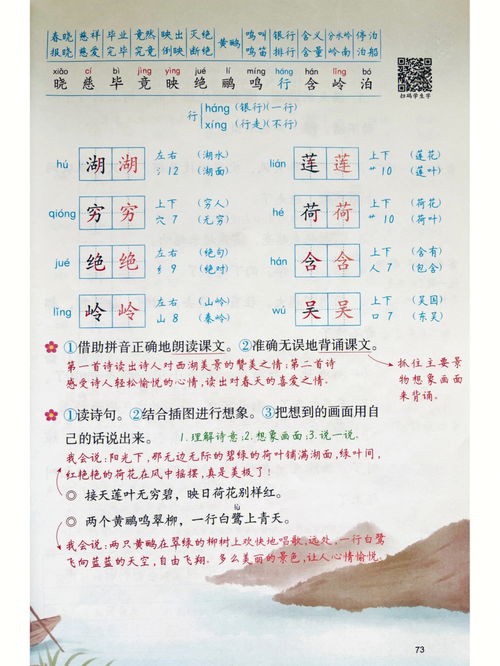 春晓 慈祥 毕业 竟然 映出 灭绝 黄鹂 鸣叫 银行 含义 分水岭 停泊
报晓 慈爱 完毕 究竟 倒映 断绝 鸣笛 排行 含量 岭南 泊船
xiǎo cí bì jìng yìng jué lí míng háng hán lǐng bó
晓 慈 毕 竟 映 绝 鹂 鸣 行 含 岭 泊
扫码学生字
行 háng (银行)(一行)
xíng (行走)(不行)
hú 湖 湖 左右 (湖水)
氵12 (湖面)
lián 莲 莲 上下 (莲花)
艹10 (莲叶)
qióng 穷 穷 上下 (穷人)
穴 7 (无穷)
hé 荷 荷 上下 (荷花)
艹10 (荷叶)
jué 绝 绝 左右 (绝句)
纟9 (绝对)
hán 含 含 上下 (含有)
人 7 (包含)
lǐng 岭 岭 左右 (山岭)
山 8 (秦岭)
wú 吴 吴 上下 (吴国)
口 7 (东吴)
①借助拼音正确地朗读课文。②准确无误地背诵课文。
第一首诗读出诗人对西湖美景的赞美之情;第二首诗
感受诗人轻松愉悦的心情,读出对春天的喜爱之情。
抓住主要景
物想象画面
来背诵。
①读诗句。②结合插图进行想象。③把想到的画面用自
己的话说出来。 1.理解诗意;2.想象画面;3.说一说。
我会说:阳光下,那无边无际的碧绿的荷叶铺满湖面,绿叶间,
红艳艳的荷花在风中摇摆,真是美极了!
◎ 接天莲叶无穷碧,映日荷花别样红。
◎ 两个黄鹂鸣翠柳,一行白鹭上青天。
我会说:两只黄鹂在翠绿的柳树上欢快地唱歌,远处,一行白鹭
飞向蓝蓝的天空,自由飞翔。多么美丽的景色,让人心情愉悦。
73